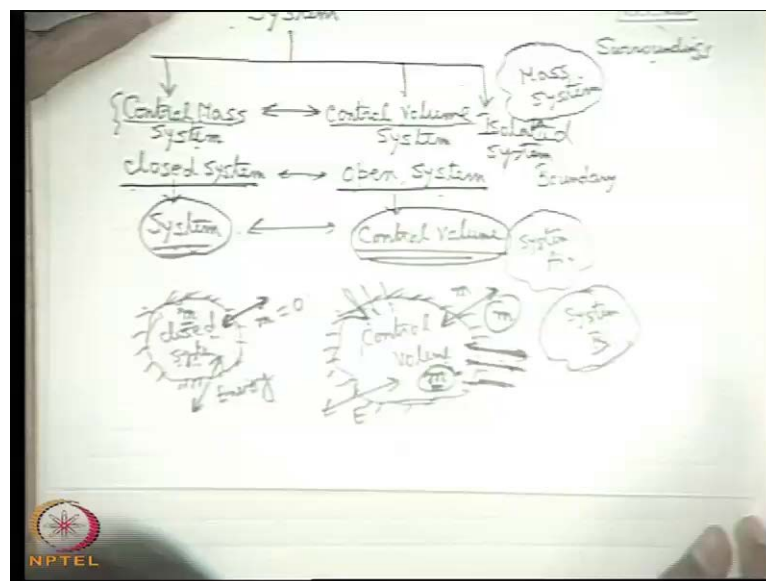 System
Surroundings
Mass
System
Control Mass ↔ Control Volume
System System
Isolated
System
closed System ↔ open System
Boundary
System ↔ Control Volume
System
A
m
closed
System
m = 0
Energy
m
m
Control
Volume
m
E
System
B
NPTEL